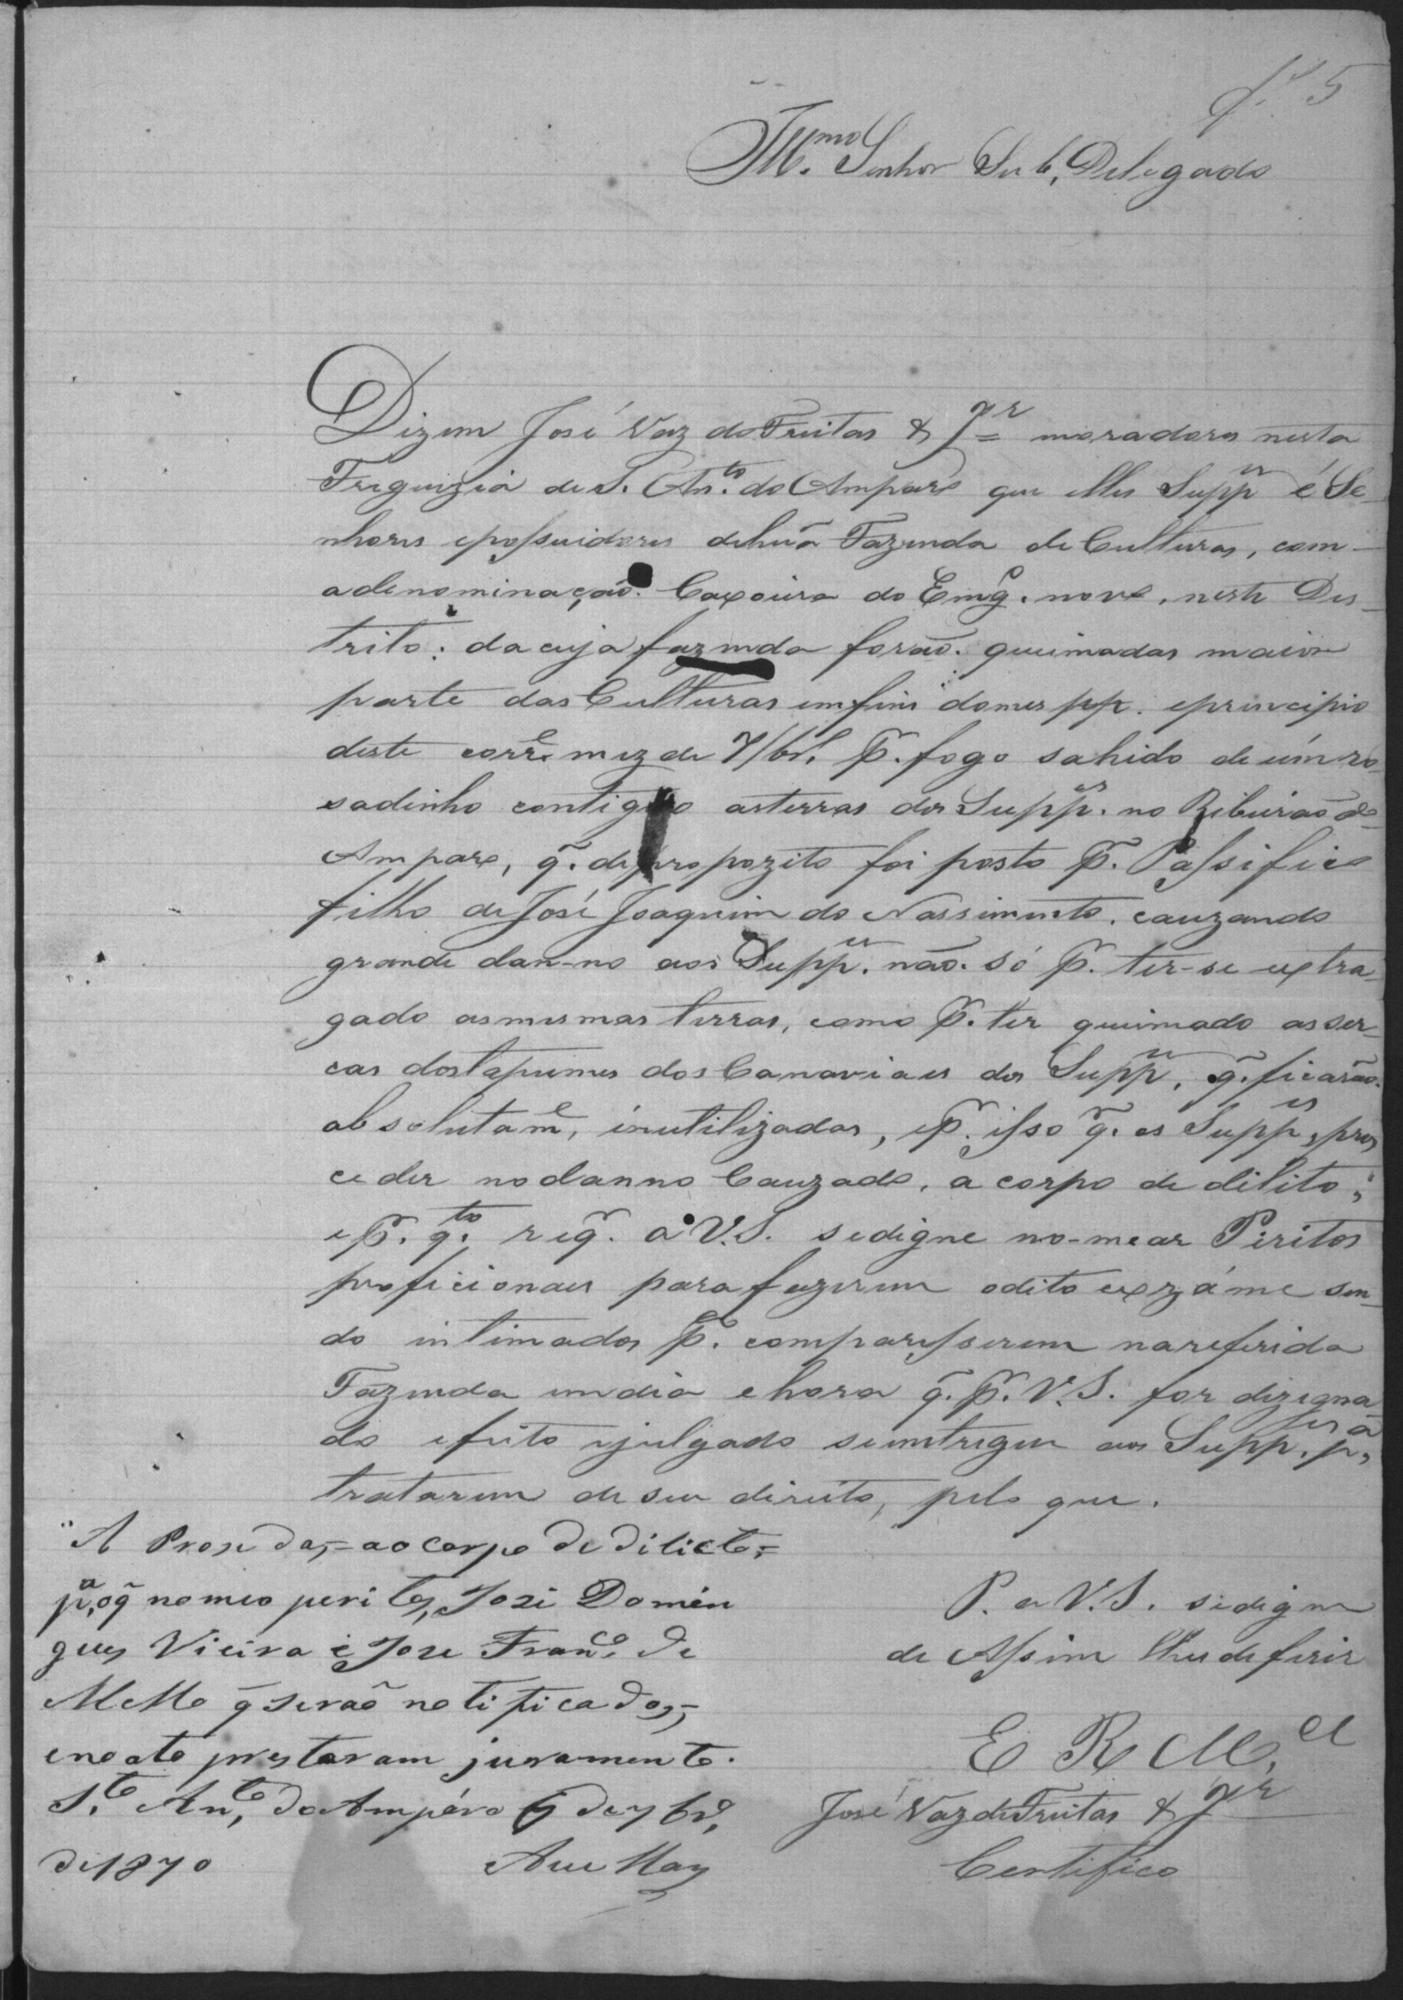 fl 5
Illmo. Senhor Sub, Delegado
Dizem José Vaz de Freitas & Jr. moradores nesta
Freguizia de S. Anto. do Amparo que elles Suppes é Se-
nhores epossuidores dehuã Fazenda de Culturas, com-
adenominação. Caxoeira do Emgo. novo, neste Des-
trito: da cuja fazenda forão. queimadas maior
parte das Culturas emfins domes pp. eprincipio
deste corre. mez de 7/brº. pr. fogo sahido de úm ro-
sadinho contiguo asterras dos Suppes. no Ribeirão do
Amparo, q̃. depropozito foi posto pr. Passifico
filho de José Joaquim do Nassimento. cauzando
grande dan-no aos Suppes. não. só pr. ter-se extra-
gado asmesmas terras, como pr. ter queimado asser-
cas dostapumes dos Canaviaes dos Suppes, q̃. ficarão.
absolutame, inutilizadas, epr. isso qr. os Suppes, pro
ceder nodanno Cauzado, a corpo de delito,
epr. qto. reqr. a V.S. sedigne no-mear Peritos
proficionaes para fazerem odito exzáme sen-
do intimados pa. comparesserem nareferida
Fazenda emdia ehora q̃. pr. V.S. for dizigna
do efeito ejulgado seentregue aos Suppes. pa,
tratarem de seu direito, pelo que.
P. a V.S. sedigne
de Assim lhes deferir
E R Mce
José Vaz de Freitas & Jr
Certifico
A Proseda,=ao corpo de delicto=
pa, oq̃ nomeio peritos, José Domin
gues Vieira e Joze Franco. de
Mello q̃ serão notificados,
enoato prestaram juramento.
Sto. Anto, do Ampáro 6 de 7brº,
de 1870